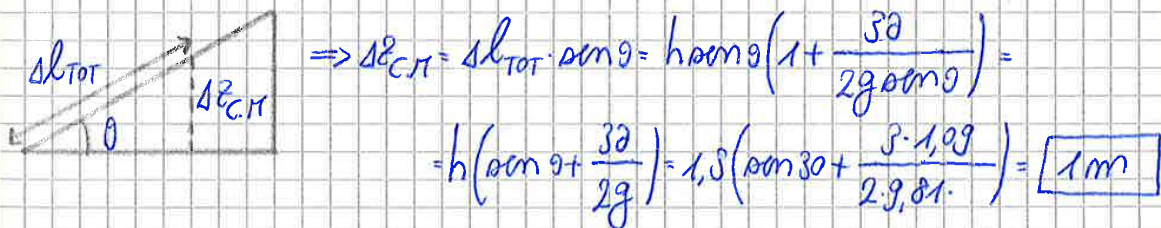 Δl_TOT
Δz_C.M
θ
⇒ Δz_C.M = Δl_TOT · sen θ = h sen θ (1 + 3a / 2g sen θ) =
= h (sen θ + 3a / 2g) = 1,5 (sen 30 + 3·1,09 / 2·9,81·) = 1 m